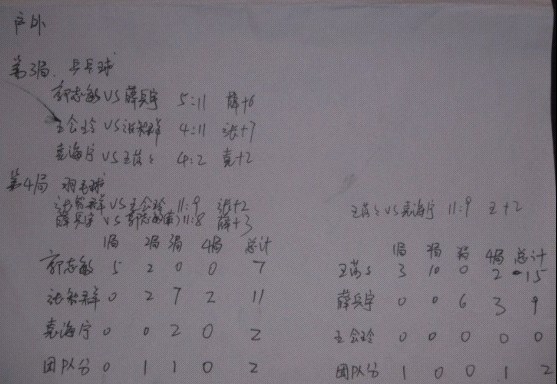 户外
第3局 乒乓球
郭志敏VS薛兵宇 5:11 薛+6
王会玲VS张智群 4:11 张+7
袁海宁VS王芬芬 4:2 袁+2
第4局 羽毛球
VS王会玲 11:9 张+2
薛兵宇VS郭志敏 11:8 薛+3
VS袁海宁 11:9 王+2
1局 2局 3局 4局 总计
郭志敏 5 2 0 0 7
0 2 7 2 11
袁海宁 0 0 2 0 2
团队分 0 1 1 0 2
1局 2局 3局 4局 总计
3 10 0 2 15
薛兵宇 0 0 6 3 9
王会玲 0 0 0 0 0
团队分 1 0 0 1 2